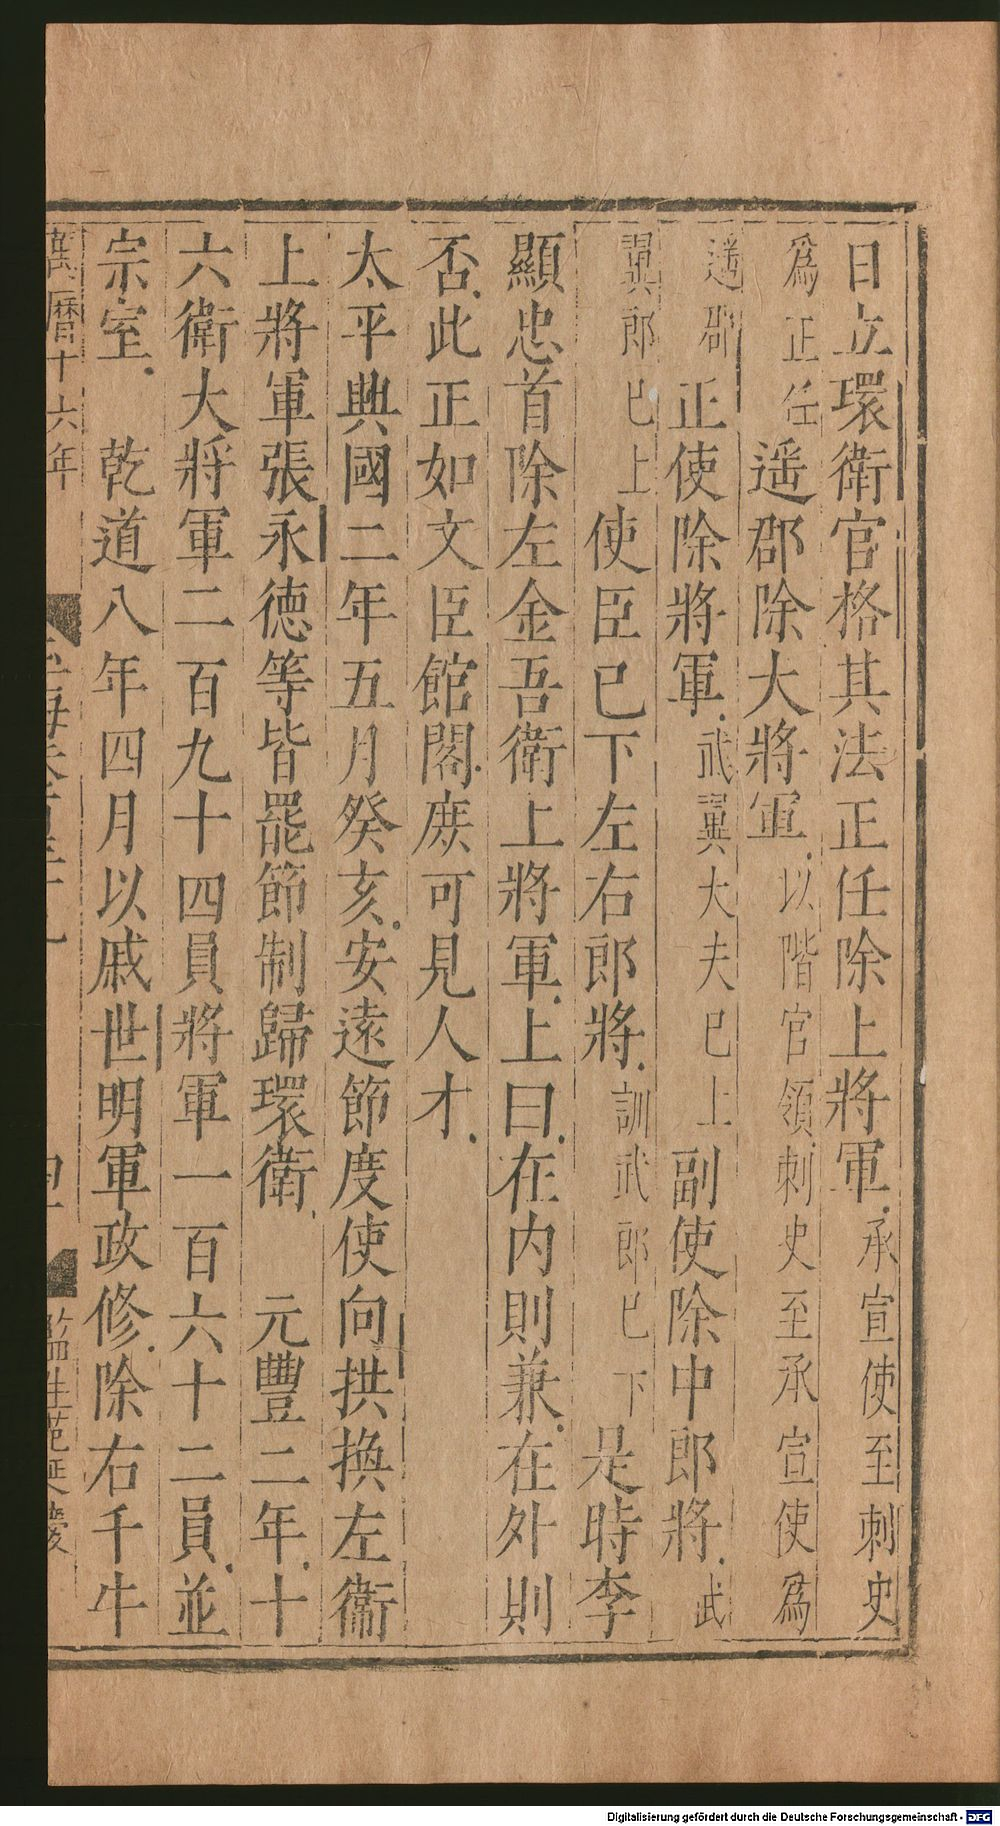 日立環衛官格其法正任除上將軍承宣使至刺史
爲正任遥郡除大將軍以階官領刺史至承宣使爲
遥郡正使除將軍武翼大夫已上副使除中郎將武
翼郎已上使臣已下左右郎將訓武郎已下是時李
顯忠首除左金吾衛上將軍上曰在内則兼在外則
否此正如文臣館閣庶可見人才
太平興國二年五月癸亥安遠節度使向拱換左衛
上將軍張永德等皆罷節制歸環衛　元豐二年十
六衛大將軍二百九十四員將軍一百六十二員並
宗室　乾道八年四月以戚世明軍政修除右千牛
萬曆十六年
監生范廷慶
Digitalisierung gefördert durch die Deutsche Forschungsgemeinschaft - DFG